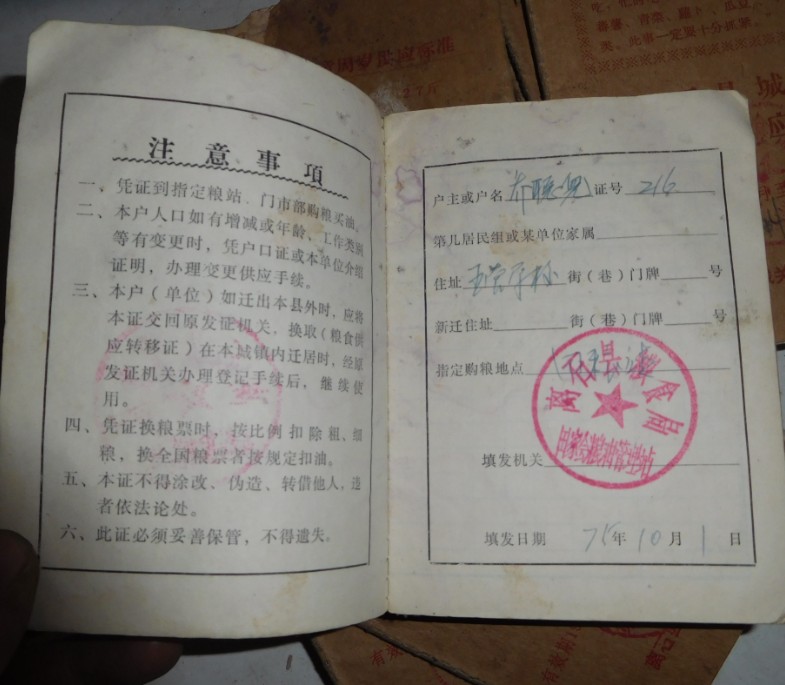 注意事項
一、凭证到指定粮站、门市部购粮买油。
二、本户人口如有增减或年龄、工作类别
等有变更时，凭户口证或本单位介绍
证明，办理变更供应手续。
三、本户（单位）如迁出本县外时，应将
本证交回原发证机关，换取（粮食供
应转移证）在本城镇内迁居时，经原
发证机关办理登记手续后，继续使
用。
四、凭证换粮票时，按比例扣除粗、细
粮，换全国粮票者按规定扣油。
五、本证不得涂改、伪造、转借他人，违
者依法论处。
六、此证必须妥善保管，不得遗失。
户主或户名 证号 216
第几居民组或某单位家属
住址 街（巷）门牌 号
新迁住址 街（巷）门牌 号
指定购粮地点
离石县粮食局
填发机关
填发日期 75年10月1日